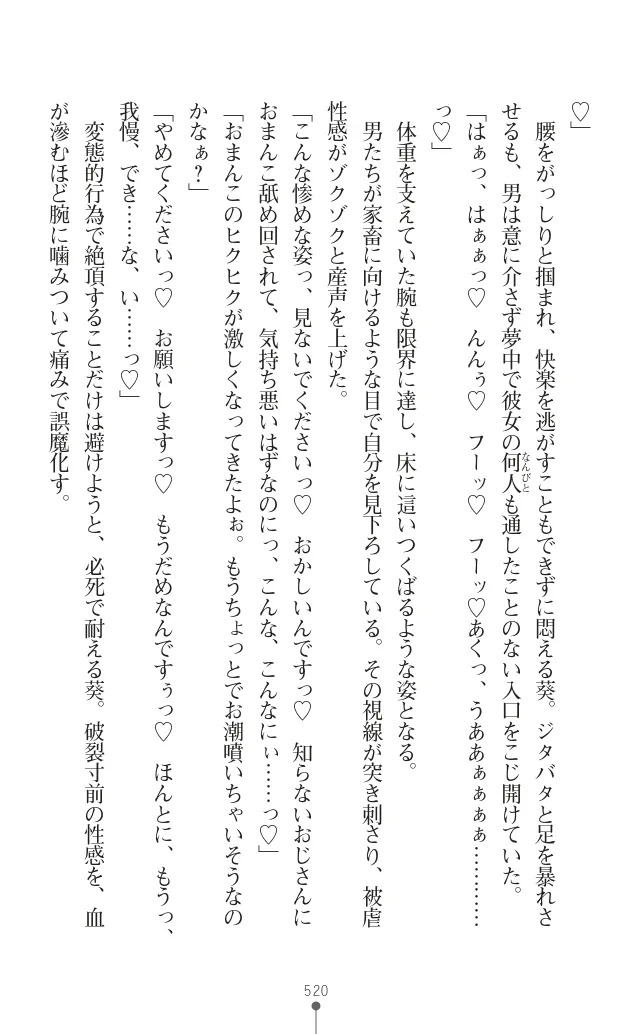 ♡」
　腰をがっしりと掴まれ、快楽を逃がすこともできずに悶える葵。ジタバタと足を暴れさ
せるも、男は意に介さず夢中で彼女の何人も通したことのない入口をこじ開けていた。
なんびと
「はぁっ、はぁぁっ♡　んんぅ♡　フーッ♡　フーッ♡あくっ、うああぁぁぁぁ…………
っ♡」
　体重を支えていた腕も限界に達し、床に這いつくばるような姿となる。
　男たちが家畜に向けるような目で自分を見下ろしている。その視線が突き刺さり、被虐
性感がゾクゾクと産声を上げた。
「こんな惨めな姿っ、見ないでくださいっ♡　おかしいんですっ♡　知らないおじさんに
おまんこ舐め回されて、気持ち悪いはずなのにっ、こんな、こんなにぃ……っ♡」
「おまんこのヒクヒクが激しくなってきたよぉ。もうちょっとでお潮噴いちゃいそうなの
かなぁ？」
「やめてくださいっ♡　お願いしますっ♡　もうだめなんですぅっ♡　ほんとに、もうっ、
我慢、でき……な、い……っ♡」
　変態的行為で絶頂することだけは避けようと、必死で耐える葵。破裂寸前の性感を、血
が滲むほど腕に噛みついて痛みで誤魔化す。
520